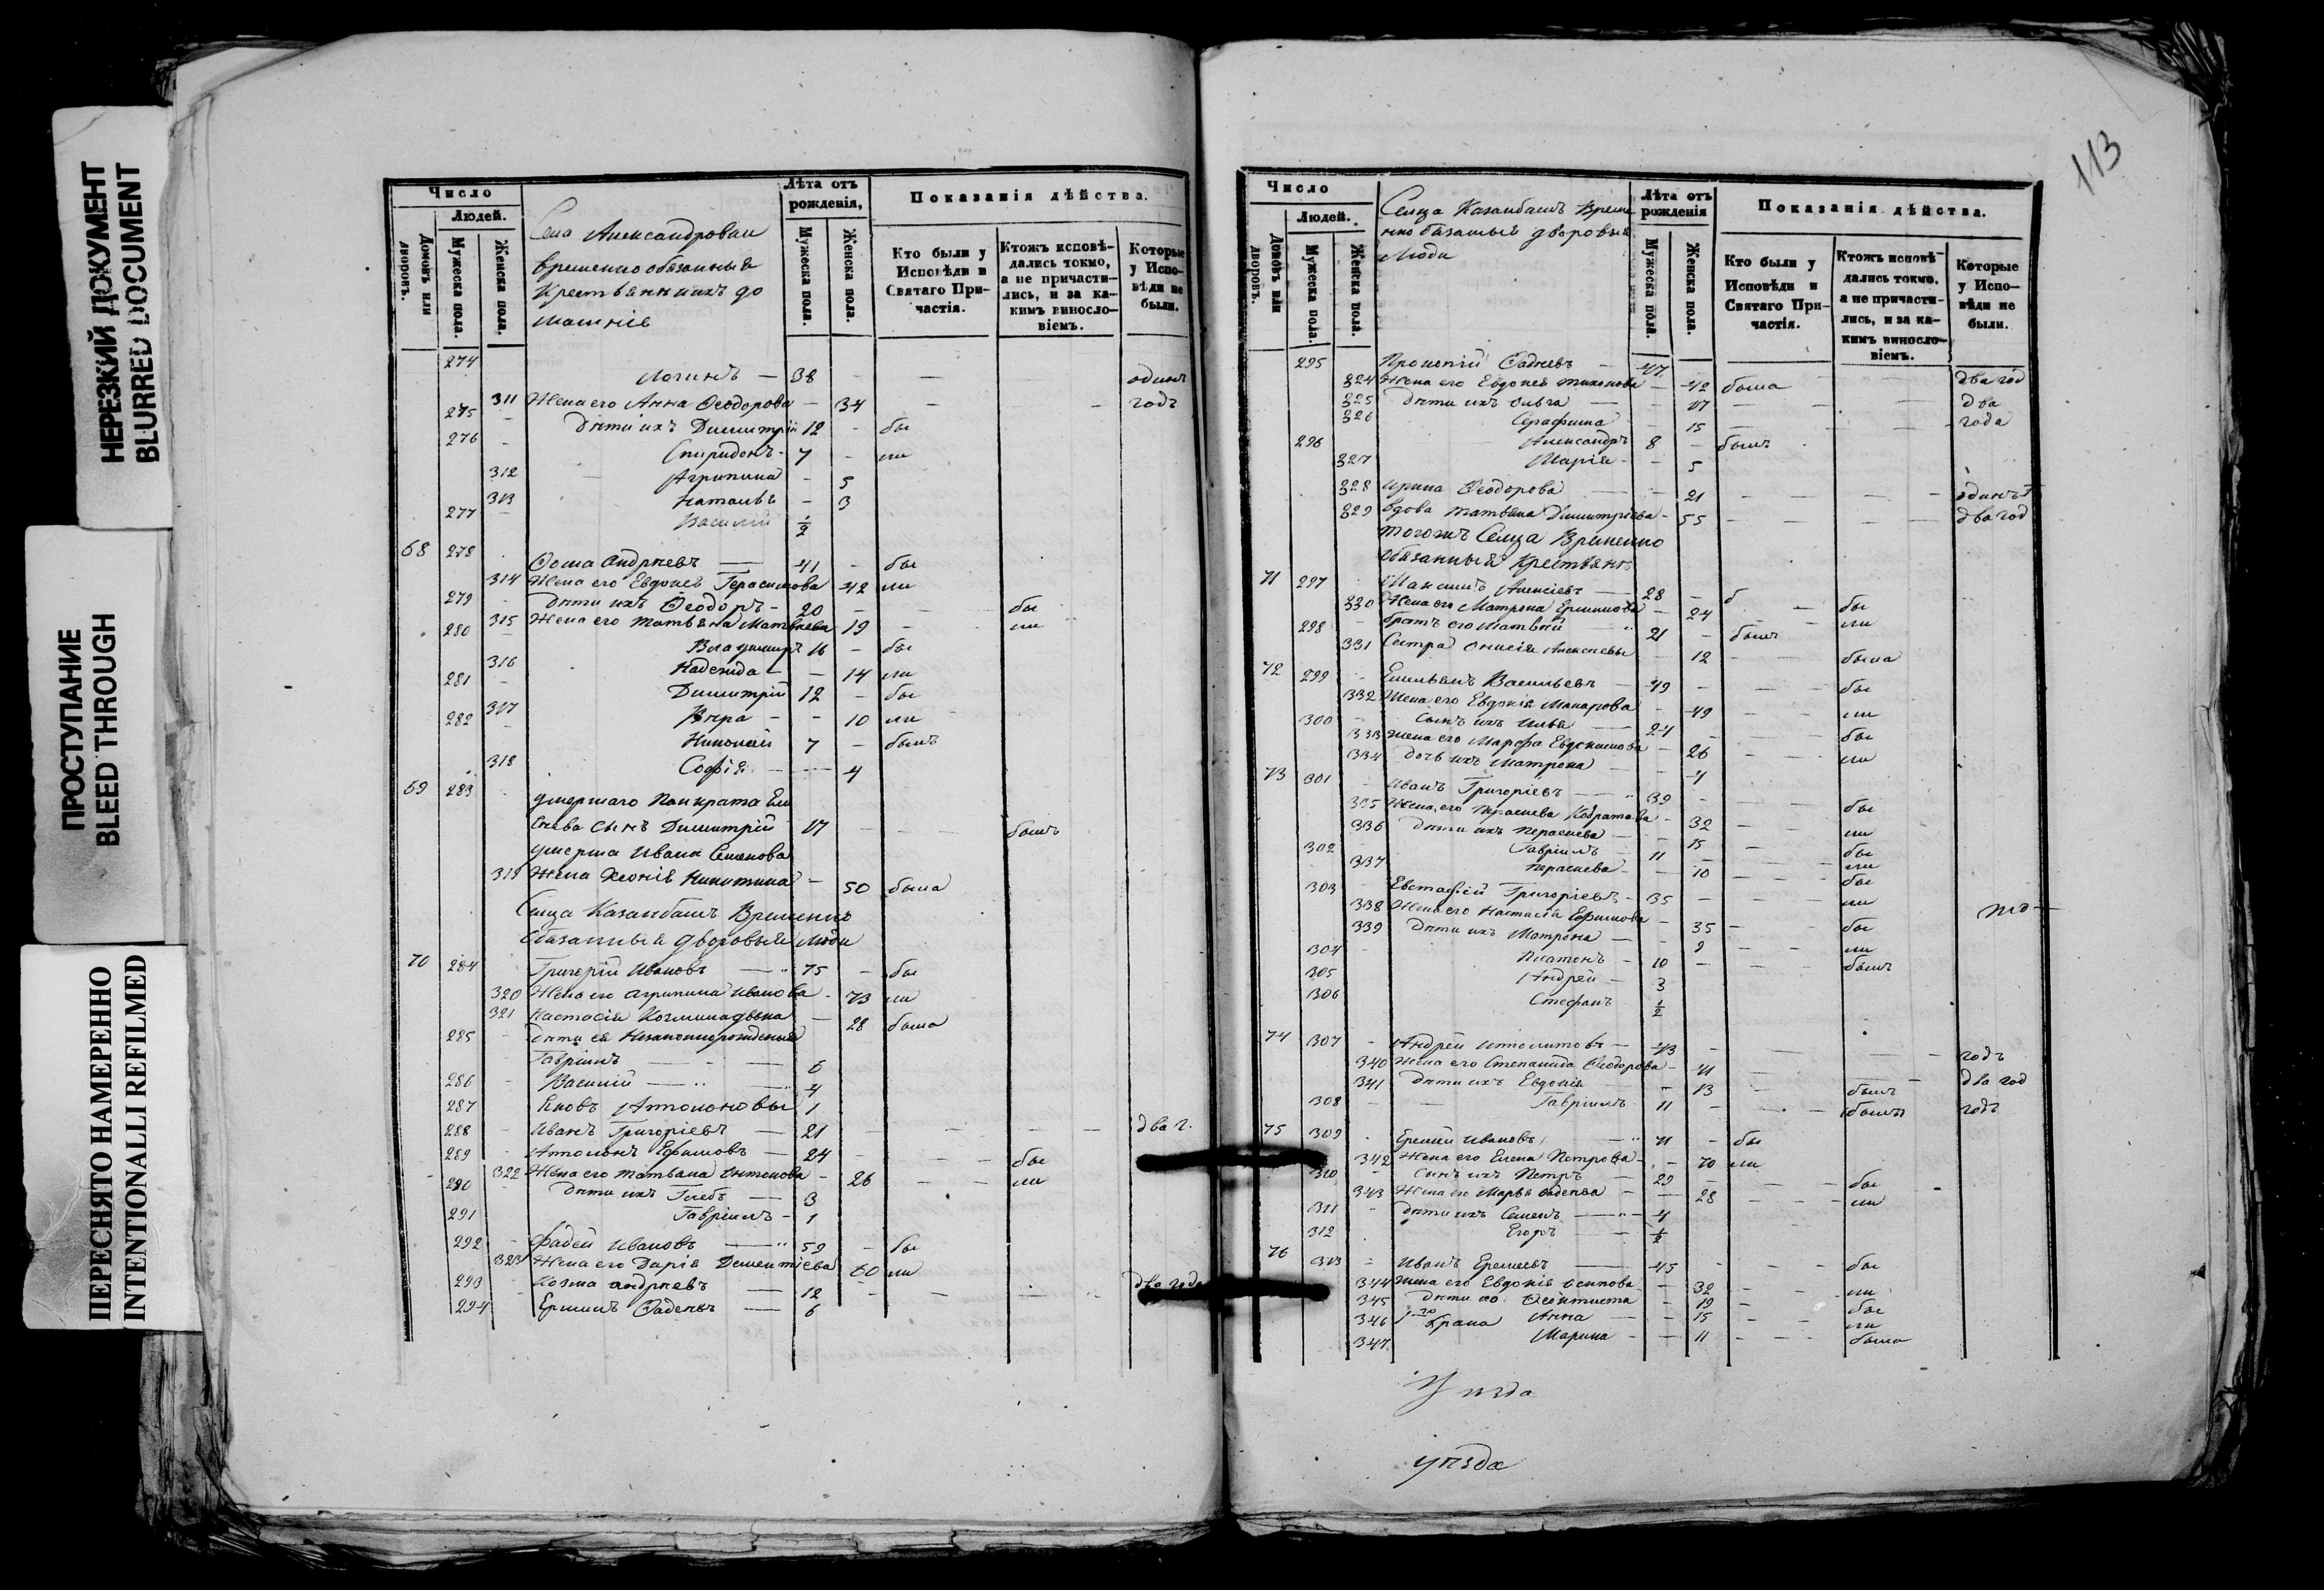 НЕРЕЗКИЙ ДОКУМЕНТ
BLURRED DOCUMENT
ПРОСТУПАНИЕ
BLEED THROUGH
ПЕРЕСНЯТО НАМЕРЕННО
INTENTIONALLI REFILMED
Число
Людей.
Домовъ или дворовъ.
Мужеска пола.
Женска пола.
Села Александровки
временнообязанныя
Крестьяне и ихъ до
машніе
Лѣта отъ рожденія,
Мужеска пола.
Женска пола.
Показанія дѣйства.
Кто были у Исповѣди и Святаго Причастія.
Ктожъ исповѣдались токмо, а не причастились, и за какимъ винословіемъ.
Которые у Исповѣди не были.
274 Логинъ — 38 — — одинъ
311 Жена его Анна Ѳеодорова — 34 — — годъ
275 Дѣти ихъ Димитрій 12 - бы
276 Спиридонъ - 7 - ли
312 Агрипина - 5
313 Наталья - 3
277 Василій 1/2
68 278 Ѳома Андреевъ — 41 - бы
314 Жена его Евдокія Герасимова 42 ли
279 Дѣти ихъ Ѳеодоръ - 20 - - бы
315 Жена его Татьяна Матвѣева 19 - ли
280 Владимиръ 16 - бы
316 Надежда - - 14 ли
281 Димитрій 12 - бы
317 Вѣра - - 10 ли
282 Николай 7 - былъ
318 Софія - - 4
69 283 умершаго Панкрата Ели
сѣева сынъ Димитрій 17 - - былъ
умерша Ивана Семенова
319 Жена Хеонія Никитина - 50 была
Сельца Казанбашъ Временно
обязанныя дворовыя люди
70 284 Григорій Ивановъ — 75 - бы
320 Жена его Агрипина Иванова - 73 ли
321 Настасія - 28 была
285 Дѣти ея Незаконнорожденныя
Гавріилъ — 6
286 Василій — 4
287 Яковъ Антоновы 1
288 Иванъ Григоріевъ — 21 - - - два г.
289 Антонъ Ефимовъ — 24 - - бы
322 Жена его Татьяна Антонова - 26 - - ли
290 Дѣти ихъ Глебъ — 3
291 Гавріилъ - 1
292 Фадей Ивановъ — 59 - бы
323 Жена его Дарія Дементіева 60 ли
293 Козма Андреевъ — 12 - - - два года
294 Ермилъ Ѳадеевъ — 6
113
Число
Людей.
Домовъ или дворовъ.
Мужеска пола.
Женска пола.
Сельца Казанбашъ Време
ннобязаныя дворовыя
Люди
Лѣта отъ рожденія
Мужеска пола.
Женска пола.
Показанія дѣйства.
Кто были у Исповѣди и Святаго Причастія.
Ктожъ исповѣдались токмо, а не причастились, и за какимъ винословіемъ.
Которые у Исповѣди не были.
295 Прокопій Ѳадеевъ - 47 - - - два год
324 Жена его Евдокія Тихонова - 42 была
325 Дѣти ихъ Ольга - 17 - - два
326 Серафима - 15 - - года
296 Александръ 8 - былъ
327 Марія - - 5
328 Ирина Ѳеодорова - 21 - - - одинъ г
329 Вдова Татьяна Димитріева - 55 - - - два год
Тогожъ Сельца Временно
обязанныя Крестьяне
71 297 Максимъ Алексіевъ - 28 - - бы
330 Жена его Матрона Ермилова - 24 - - ли
298 братъ его Матвѣй 21 - былъ
331 Сестра Анисія Алексѣевы 12 - была
72 299 Емельянъ Васильевъ - 49 - - бы
332 Жена его Евдокія Макарова - 49 - ли
300 сынъ ихъ Илья - 24 - - бы
333 Жена его Марфа Евдокимова - 26 - ли
334 дочь ихъ Матрона - - 4
73 301 Иванъ Григоріевъ - 39 - - бы
335 Жена его Параскева Кодратова - 32 - ли
336 Дѣти ихъ Параскева - - 15 - бы
302 Гавріилъ - 11 - - ли
337 Параскева - - 10 - бы
303 Евстафій Григоріевъ - 35 - - ли
338 Жена его Настасія Ефимова - 35 - бы
339 Дѣти ихъ Матрона - - 9 - ли
304 Платонъ - 10 - - былъ
305 Андрей - 3
306 Стефанъ 1/2
74 307 Андрей Иполитовъ - 43 - - - годъ
340 Жена его Степанида Ѳеодорова - 41 - - два год
341 Дѣти ихъ Евдокія - 13 - былъ
308 Гавріилъ 11 - - былъ годъ
75 309 Еремій Ивановъ - 71 - бы
342 Жена его Елена Петрова - - 70 ли
310 Сынъ ихъ Петръ - 29 - - бы
343 Жена его Марья Ѳадеева - - 28 - ли
311 Дѣти ихъ Семенъ - 4
312 Егоръ - 1/2
76 313 Иванъ Еремеевъ - 45 - - бы
344 Жена его Евдокія Осипова - 32 - ли
345 Дѣти его Ѳеоктиста - 19 - бы
346 1го брака Анна - - 15 - ли
347 Марина - - 11 - была
Уѣзда
уѣзда